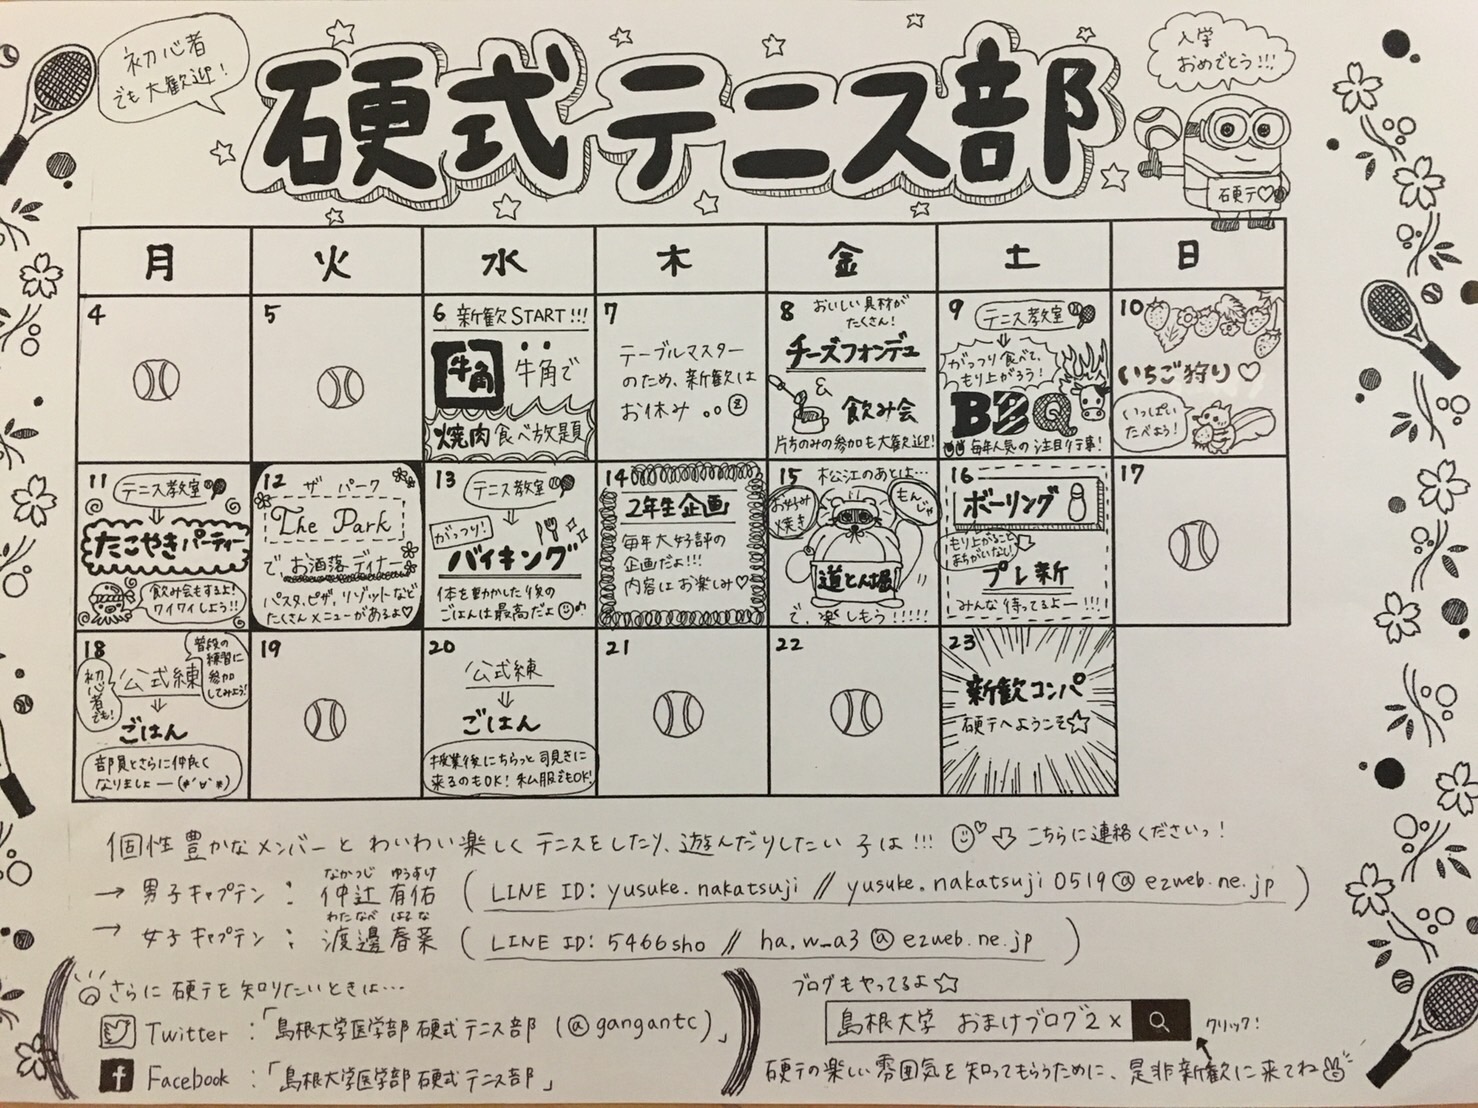 初心者
でも大歓迎!
硬式テニス部
入学
おめでとう!!!
硬テ♡
月 火 水 木 金 土 日
4
5
6 新歓START!!!
牛角
牛角で
焼肉食べ放題
7
テーブルマスター
のため、新歓は
お休み
8
おいしい具材が
たくさん!
チーズフォンデュ
&
飲み会
片方のみの参加も大歓迎!
9
テニス教室
⇓
がっつり食べて、
もり上がろう!
BBQ
毎年人気の注目行事!
10
いちご狩り♡
いっぱい
たべよう!
11
テニス教室
⇓
たこやきパーティー
飲み会もするよ!
ワイワイしよう!!
12
ザ パーク
The Park
で、お洒落ディナー
パスタ、ピザ、リゾットなど
たくさんメニューがあるよ♡
13
テニス教室
⇓
がっつり!
バイキング
体を動かした後の
ごはんは最高だよ
14
2年生企画
毎年大好評の
企画だよ!!!
内容はお楽しみ♡
15
松江のあとは…
お好み
焼き
もんじゃ
道とん堀
で、楽しもう!!!!!
16
ボーリング
もり上がること
まちがいなし!
⇓
プレ新
みんな待ってるよー!!!
17
18
初心者でも!
公式練
普段の
練習に
参加
してみよう!
⇓
ごはん
部員とさらに仲良く
なりましょー(*´∀`*)
19
20
公式練
⇓
ごはん
授業後にちらっと覗きに
来るのもOK!私服でもOK!
21
22
23
新歓コンパ
硬テへようこそ☆
個性豊かなメンバーとわいわい楽しくテニスをしたり、遊んだりしたい子は!!! ⇩ こちらに連絡くださいっ!
なかつじ ゆうすけ
→ 男子キャプテン : 仲辻 有佑 ( LINE ID: yusuke.nakatsuji // yusuke.nakatsuji0519@ezweb.ne.jp )
わたなべ はるな
→ 女子キャプテン : 渡邊 春菜 ( LINE ID: 5466sho // ha.w_a3@ezweb.ne.jp )
さらに硬テを知りたいときは…
Twitter :「島根大学医学部硬式テニス部 (@gangantc)」
Facebook :「島根大学医学部硬式テニス部」
ブログもやってるよ☆
島根大学 おまけブログ2 ×
クリック!
硬テの楽しい雰囲気を知ってもらうために、是非新歓に来てね